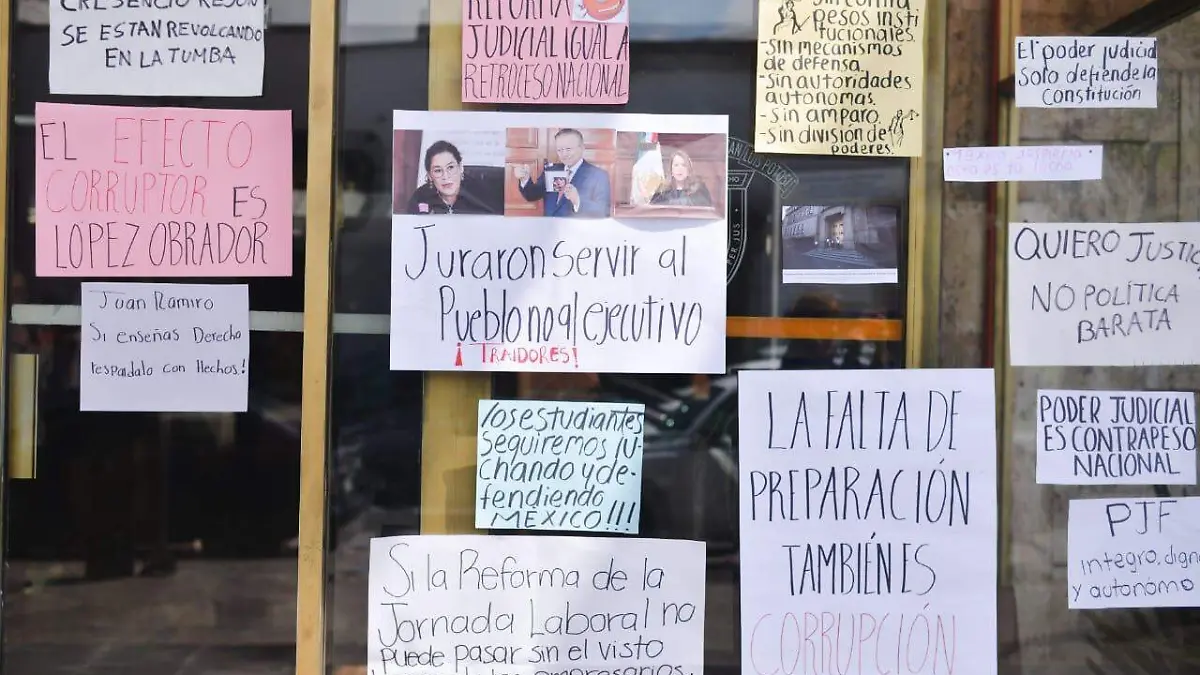 SE ESTAN REVOLCANDO
EN LA TUMBA
REFORMA
JUDICIAL IGUAL A
RETROCESO NACIONAL
pesos insti
tucionales.
-Sin mecanismos
de defensa.
-Sin autoridades
autonomas.
-Sin amparo.
-Sin división de
poderes.
El poder judicial
solo defiende la
Constitución
EL EFECTO
CORRUPTOR ES
LOPEZ OBRADOR
Juan Ramiro
Si enseñas Derecho
respaldalo con Hechos!
Juraron servir al
Pueblo no al ejecutivo
¡TRAIDORES!
SAN LUIS POTOSÍ
PER JUS
QUIERO JUSTIC
NO POLÍTICA
BARATA
los estudiantes
seguiremos lu-
chando y de-
fendiendo
MÉXICO!!!
LA FALTA DE
PREPARACIÓN
TAMBIÉN ES
CORRUPCIÓN
PODER JUDICIAL
ES CONTRAPESO
NACIONAL
PJF
integro, dign
y autónomo
Si la Reforma de la
Jornada Laboral no
puede pasar sin el visto
empresarios